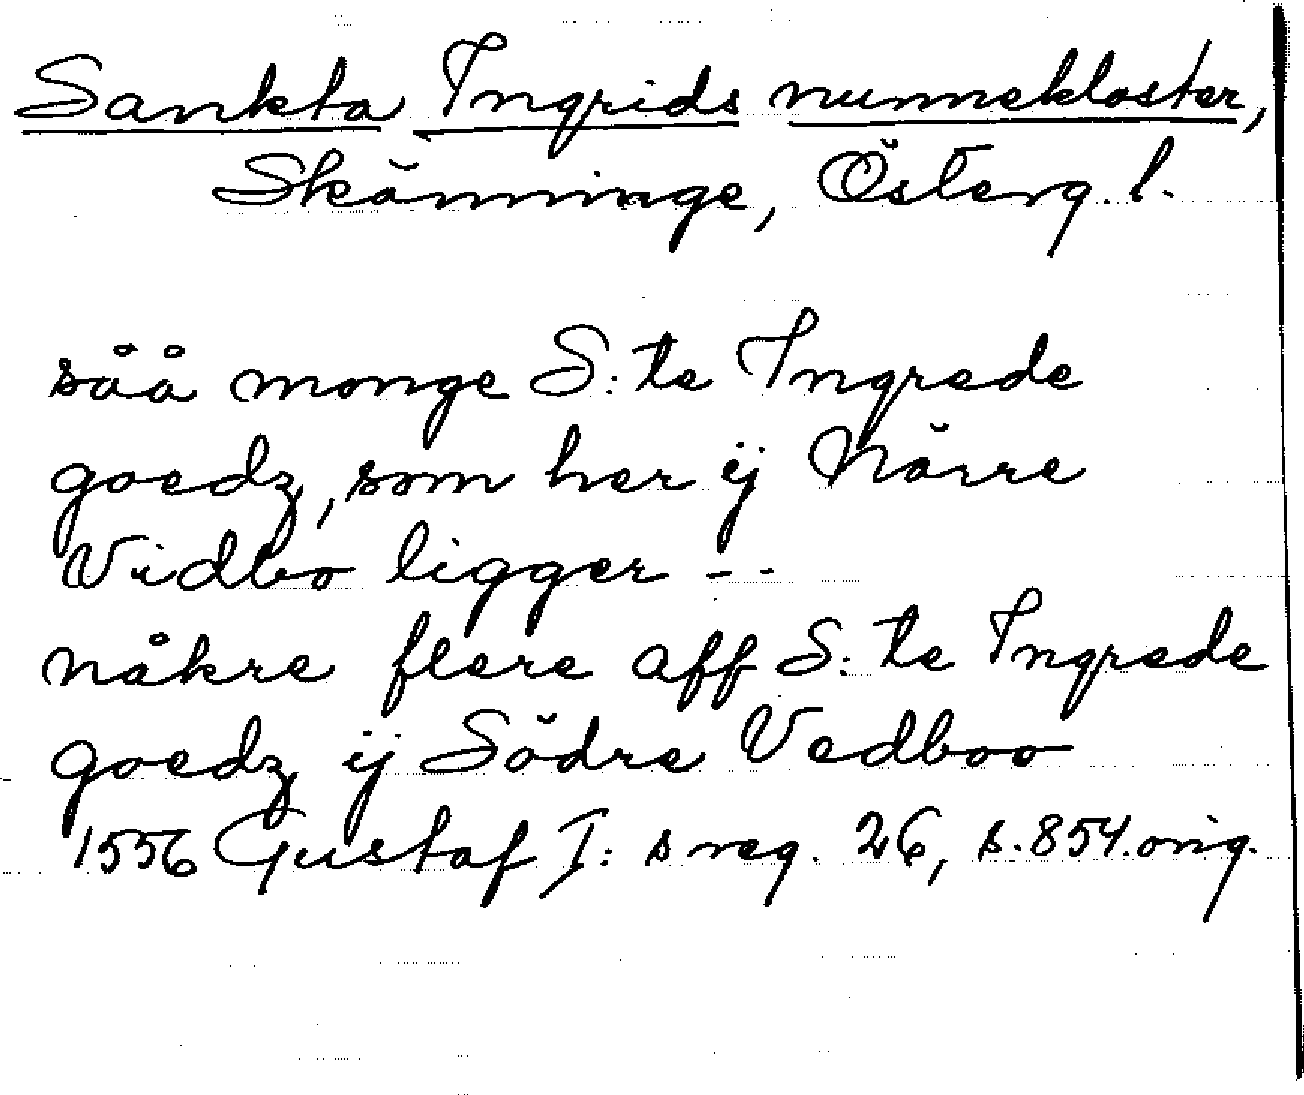 Sankta Ingrids nunnekloster,
Skänninge, Österg. l.
såå monge S:te Ingrede
goedz, som her ij Nörre
Vidbo ligger - -
nåkre flere aff S:te Ingrede
goedz ij Södre Vedboo
1556 Gustaf I:s reg. 26, s. 854. orig.